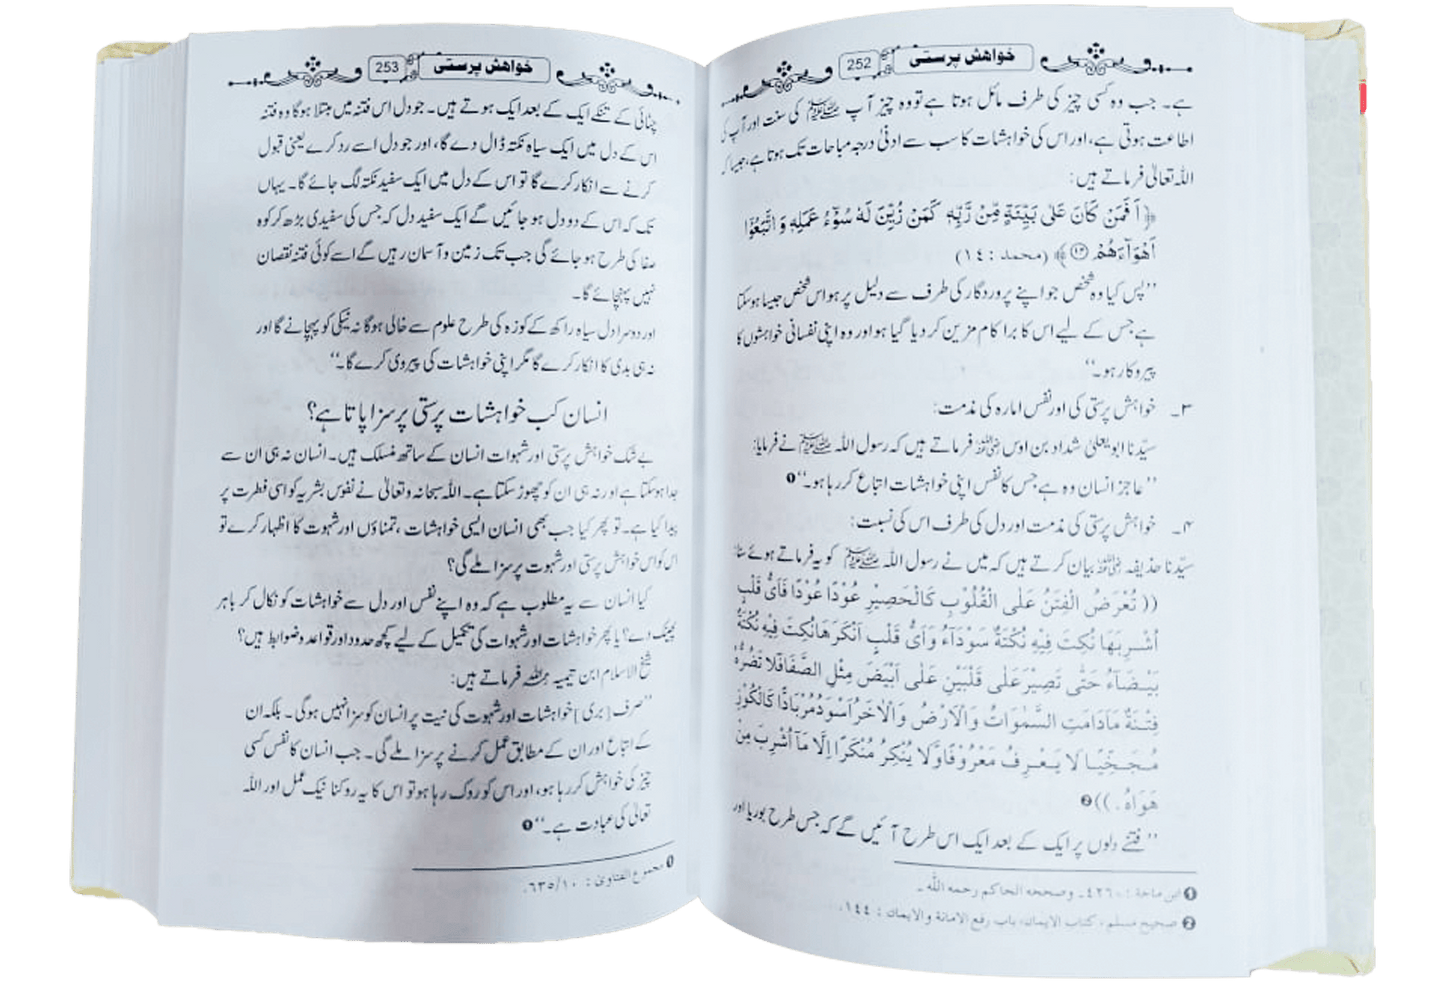 252
خواهش پرستی
ہے۔ جب وہ کسی چیز کی طرف مائل ہوتا ہے تو وہ چیز آپ ﷺ کی سنت اور آپ کی
اطاعت ہوتی ہے، اور اس کی خواہشات کا سب سے ادنیٰ درجہ مباحات تک ہوتا ہے، جیسا کہ
اللہ تعالیٰ فرماتے ہیں:
﴿اَفَمَنْ كَانَ عَلٰى بَيِّنَةٍ مِّنْ رَّبِّهٖ كَمَنْ زُيِّنَ لَهٗ سُوْٓءُ عَمَلِهٖ وَ اتَّبَعُوْٓا
اَهْوَآءَهُمْ ۝۱۴﴾ (محمد : ۱۴)
’’پس کیا وہ شخص جو اپنے پروردگار کی طرف سے دلیل پر ہو اس شخص جیسا ہوسکتا
ہے جس کے لیے اس کا برا کام مزین کر دیا گیا ہو اور وہ اپنی نفسانی خواہشوں کا
پیروکار ہو۔‘‘
۳۔ خواہش پرستی کی اور نفس امارہ کی مذمت:
سیّدنا ابو یعلیٰ شداد بن اوس رضی اللہ عنہ فرماتے ہیں کہ رسول اللہ ﷺ نے فرمایا:
’’عاجز انسان وہ ہے جس کا نفس اپنی خواہشات اتباع کر رہا ہو۔‘‘ ❶
۴۔ خواہش پرستی کی مذمت اور دل کی طرف اس کی نسبت:
سیّدنا حذیفہ رضی اللہ عنہ بیان کرتے ہیں کہ میں نے رسول اللہ ﷺ کو یہ فرماتے ہوئے سنا:
(( تُعْرَضُ الْفِتَنُ عَلَى الْقُلُوْبِ كَالْحَصِيْرِ عُوْدًا عُوْدًا فَاَيُّ قَلْبٍ
اُشْرِبَهَا نُكِتَ فِيْهِ نُكْتَةٌ سَوْدَآءُ وَاَيُّ قَلْبٍ اَنْكَرَهَا نُكِتَ فِيْهِ نُكْتَةٌ
بَيْضَآءُ حَتّٰى تَصِيْرَ عَلٰى قَلْبَيْنِ عَلٰى اَبْيَضَ مِثْلِ الصَّفَا فَلَا تَضُرُّهٗ
فِتْنَةٌ مَادَامَتِ السَّمٰوَاتُ وَالْاَرْضُ وَالْاٰخَرُ اَسْوَدُ مُرْبَادًّا كَالْكُوْزِ
مُجَخِّيًا لَا يَعْرِفُ مَعْرُوْفًا وَّلَا يُنْكِرُ مُنْكَرًا اِلَّا مَآ اُشْرِبَ مِنْ
هَوَاهُ . )) ❷
’’فتنے دلوں پر ایک کے بعد ایک اس طرح آئیں گے کہ جس طرح بوریا اور
❶ ابن ماجة : ٤٢٦٠۔ وصححه الحاكم رحمه الله ۔
❷ صحيح مسلم ، كتاب الايمان، باب رفع الامانة والايمان : ١٤٤
253
خواهش پرستی
چٹائی کے تنکے ایک کے بعد ایک ہوتے ہیں۔ جو دل اس فتنہ میں مبتلا ہوگا وہ فتنہ
اس کے دل میں ایک سیاہ نکتہ ڈال دے گا، اور جو دل اسے رد کرے یعنی قبول
کرنے سے انکار کرے گا تو اس کے دل میں ایک سفید نکتہ لگ جائے گا۔ یہاں
تک کہ اس کے دو دل ہو جائیں گے ایک سفید دل کہ جس کی سفیدی بڑھ کر کوہ
صفا کی طرح ہو جائے گی جب تک زمین و آسمان رہیں گے اسے کوئی فتنہ نقصان
نہیں پہنچائے گا۔
اور دوسرا دل سیاہ راکھ کے کوزہ کی طرح علوم سے خالی ہوگا نہ نیکی کو پہچانے گا اور
نہ ہی بدی کا انکار کرے گا مگر اپنی خواہشات کی پیروی کرے گا۔‘‘
انسان کب خواہشات پرستی پر سزا پاتا ہے؟
بے شک خواہش پرستی اور شہوات انسان کے ساتھ منسلک ہیں۔ انسان نہ ہی ان سے
جدا ہوسکتا ہے اور نہ ہی ان کو چھوڑ سکتا ہے۔ اللہ سبحانہ و تعالیٰ نے نفوس بشریہ کو اسی فطرت پر
پیدا کیا ہے۔ تو پھر کیا جب بھی انسان ایسی خواہشات ، تمناؤں اور شہوت کا اظہار کرے تو
اس کو اس خواہش پرستی اور شہوت پر سزا ملے گی؟
کیا انسان سے یہ مطلوب ہے کہ وہ اپنے نفس اور دل سے خواہشات کو نکال کر باہر
پھینک دے؟ یا پھر خواہشات اور شہوات کی تکمیل کے لیے کچھ حدود اور قواعد و ضوابط ہیں؟
شیخ الاسلام ابن تیمیہ رحمہ اللہ فرماتے ہیں:
’’صرف [بری] خواہشات اور شہوت کی نیت پر انسان کو سزا نہیں ہوگی۔ بلکہ ان
کے اتباع اور ان کے مطابق عمل کرنے پر سزا ملے گی۔ جب انسان کا نفس کسی
چیز کی خواہش کر رہا ہو، اور اس کو روک رہا ہو تو اس کا یہ روکنا نیک عمل اور اللہ
تعالیٰ کی عبادت ہے۔‘‘ ❶
❶ مجموع الفتاوىٰ : ٦٣٥/١٠.